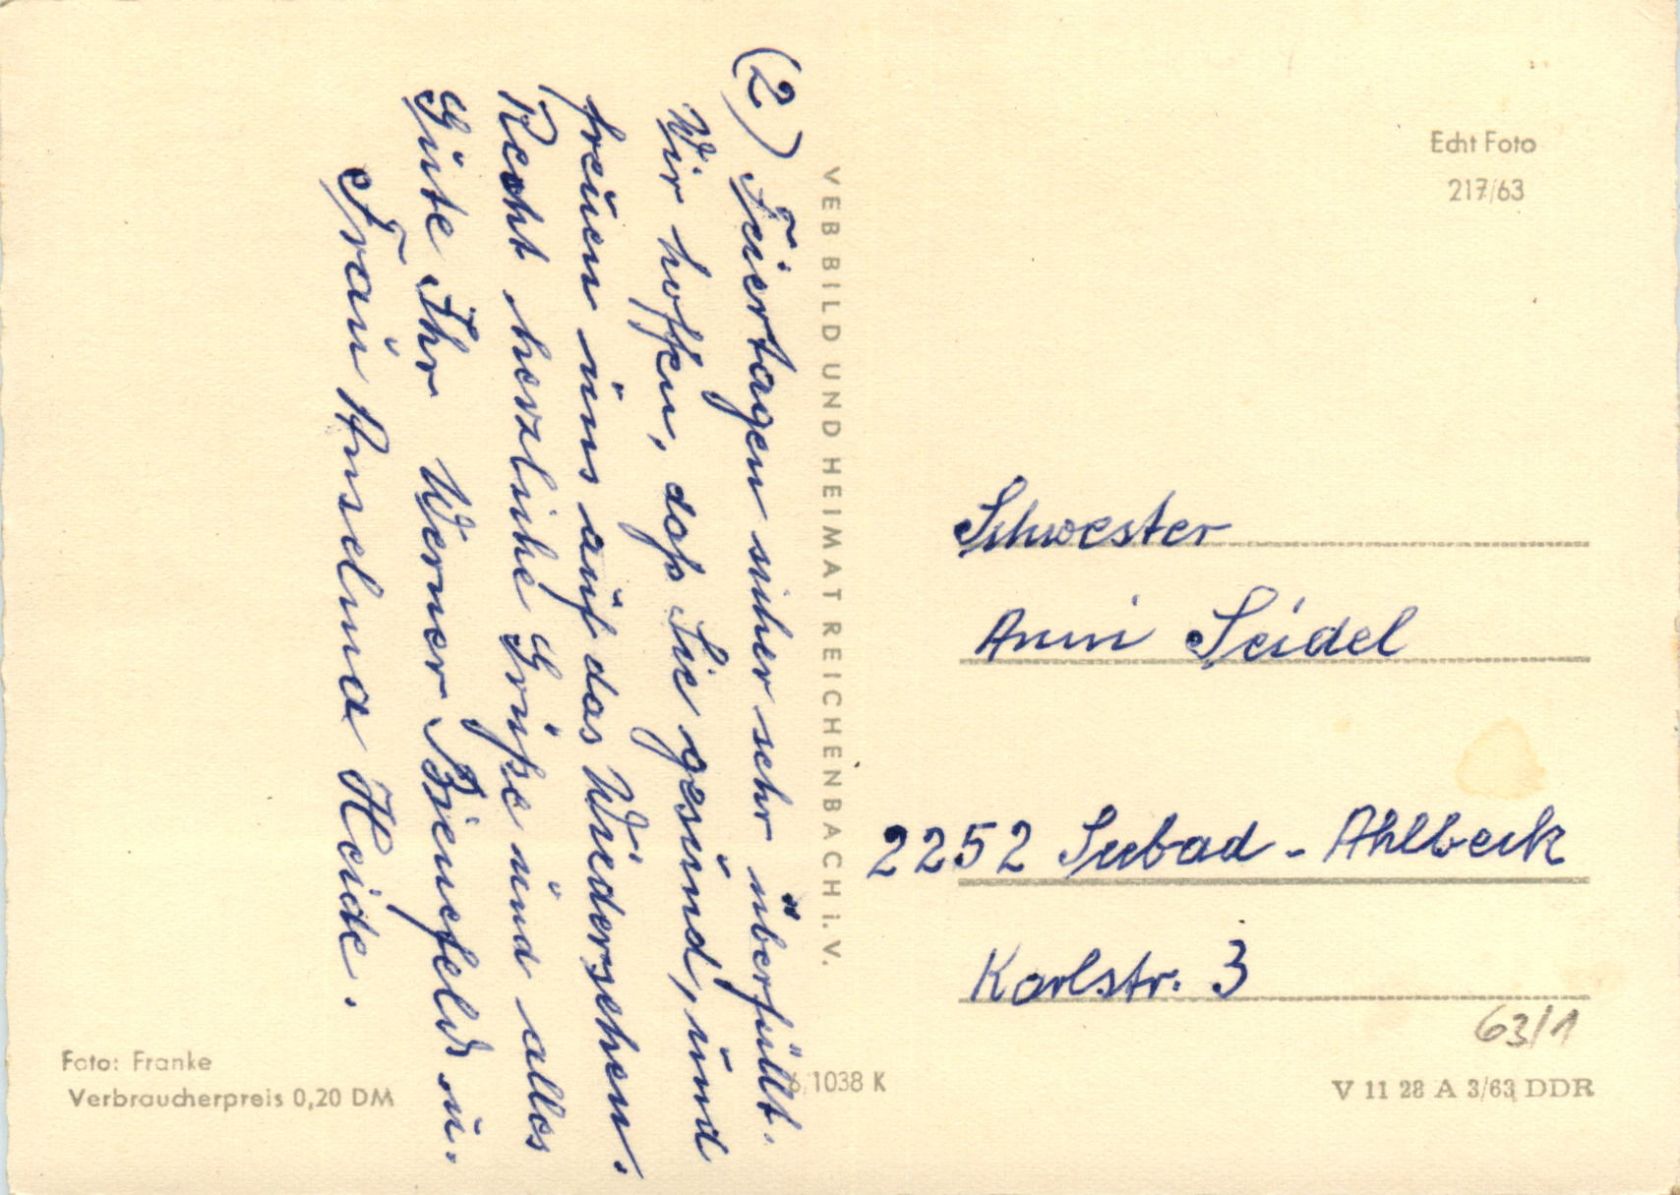 (2) Feiertagen sicher sehr überfüllt.
Wir hoffen, daß Sie gesund, und
freuen uns auf das Wiedersehen.
Recht herzliche Grüße und alles
Gute Ihr Werner Bienefeld u.
Frau Anselma Heide.
VEB BILD UND HEIMAT REICHENBACH i. V.
Echt Foto
217/63
Schwester
Anni Seidel
2252 Seebad - Ahlbeck
Karlstr. 3
63/1
Foto: Franke
Verbraucherpreis 0,20 DM
1038 K
V 11 28 A 3/63 DDR